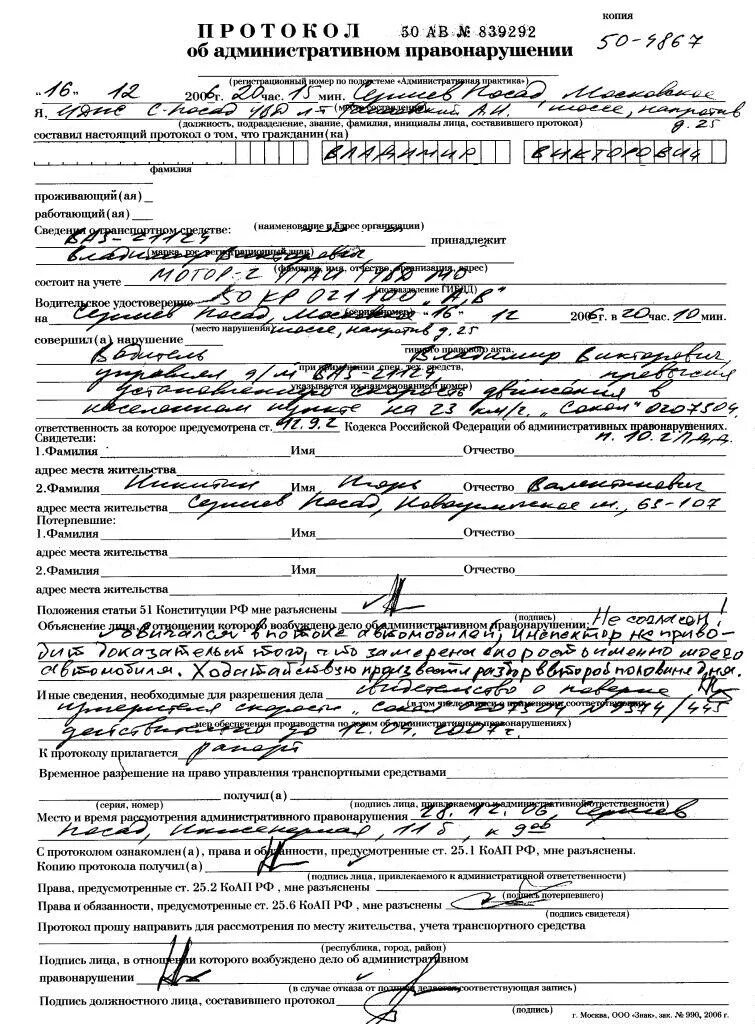 копия
ПРОТОКОЛ 50 АВ № 839292
об административном правонарушении 50-4867
(регистрационный номер по подсистеме «Административная практика»)
"16" 12 2006г. 20 час. 15 мин. Сергиев Посад Московское
(место составления)
Я, С-Посад А.И. шоссе, напротив
(должность, подразделение, звание, фамилия, инициалы лица, составившего протокол) д. 25
составил настоящий протокол о том, что гражданин(ка)
ВЛАДИМИР ВИКТОРОВИЧ
фамилия
проживающий(ая)
работающий(ая)
(наименование и адрес организации)
Сведения о транспортном средстве:
ВАЗ-21124 принадлежит
(марка, рос. регистрационный знак)
Владимир Викторович,
(фамилия, имя, отчество, организация, адрес)
состоит на учете МОТОР-2 ГАИ
(подразделение ГИБДД)
Водительское удостоверение 50 КР 021100 "А,В"
(серия, номер)
на Сергиев Посад, Московское "16" 12 2006г. в 20 час. 10 мин.
(место нарушения) шоссе, напротив д. 25
совершил(а) нарушение
Водитель Владимир Викторович,
тивного правового акта,
при применении спец. тех. средств,
управляя а/м ВАЗ-21124, превысил
указывается их наименование и номер)
установленную скорость движения в
населенном пункте на 23 км/г. "Сокол" 0207504
ответственность за которое предусмотрена ст. 12.9.2 Кодекса Российской Федерации об административных правонарушениях.
п. 10.2 ПДД
Свидетели:
1.Фамилия Имя Отчество
адрес места жительства
2.Фамилия Никитин Имя Игорь Отчество Валентинович
адрес места жительства Сергиев Посад, ш., 63-107
Потерпевшие:
1.Фамилия Имя Отчество
адрес места жительства
2.Фамилия Имя Отчество
адрес места жительства
Положения статьи 51 Конституции РФ мне разъяснены
(подпись)
Объяснение лица, в отношении которого возбуждено дело об административном правонарушении: Не согласен!
Двигался в потоке автомобилей, инспектор не приво-
дит доказательств того, что замерена скорость именно моего
автомобиля. Ходатайствую произвести разбор во второй половине дня.
Иные сведения, необходимые для разрешения дела свидетельство о поверке
(в том числе записи о применении соответствующих
измерителя скорости "Сокол" 0207504 №1374/445
мер обеспечения производства по делам об административных правонарушениях)
действительно до 12.04.2007г.
К протоколу прилагается рапорт
Временное разрешение на право управления транспортными средствами
получил(а)
(серия, номер) (подпись лица, привлекаемого к административной ответственности)
Место и время рассмотрения административного правонарушения 28.12.06, Сергиев
Посад, Инженерная, 11 б, к 9 00
С протоколом ознакомлен(а), права и обязанности, предусмотренные ст. 25.1 КоАП РФ, мне разъяснены.
Копию протокола получил(а)
(подпись лица, привлекаемого к административной ответственности)
Права, предусмотренные ст. 25.2 КоАП РФ , мне разъяснены
(подпись потерпевшего)
Права и обязанности, предусмотренные ст. 25.6 КоАП РФ , мне разъяснены
(подпись свидетеля)
Протокол прошу направить для рассмотрения по месту жительства, учета транспортного средства
(республика, город, район)
Подпись лица, в отношении которого возбуждено дело об административном
правонарушении
(в случае отказа от подписи делается соответствующая запись)
Подпись должностного лица, составившего протокол
(подпись)
г. Москва, ООО «Знак», зак. № 990, 2006 г.